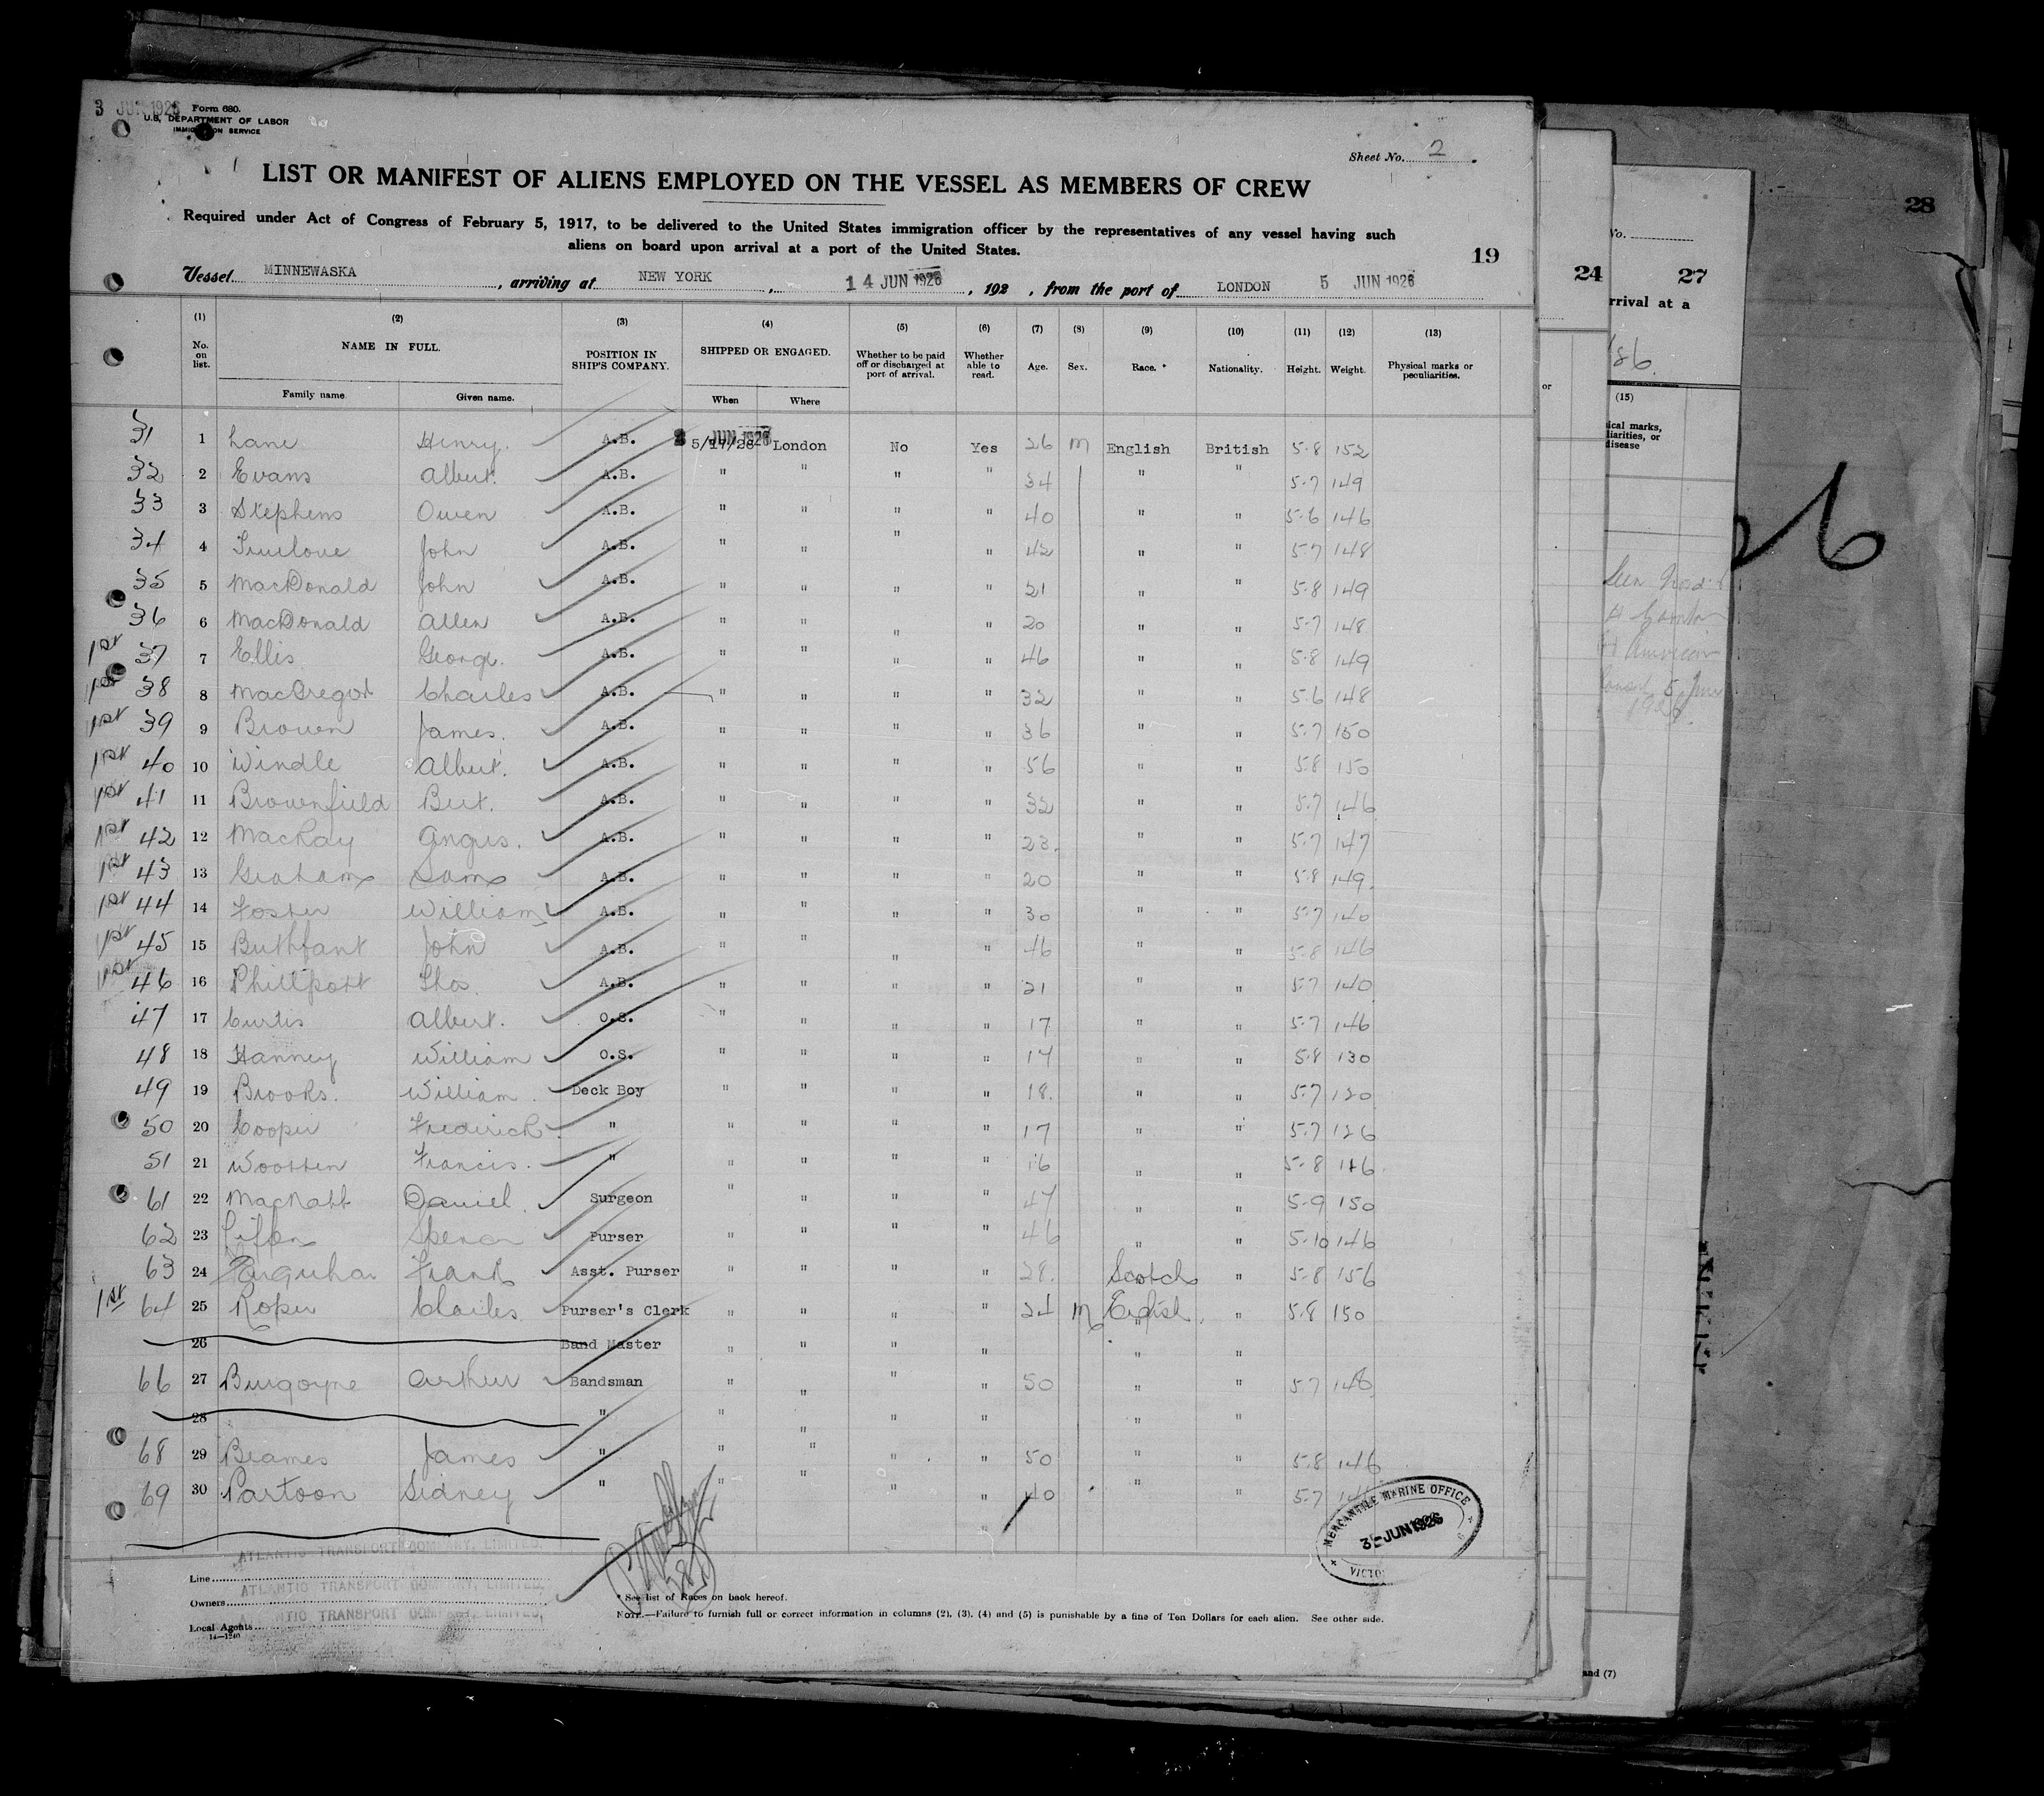 3 JUN 1926
Form 680.
U.S. DEPARTMENT OF LABOR
IMMIGRATION SERVICE
Sheet No. 2
LIST OR MANIFEST OF ALIENS EMPLOYED ON THE VESSEL AS MEMBERS OF CREW
Required under Act of Congress of February 5, 1917, to be delivered to the United States immigration officer by the representatives of any vessel having such
aliens on board upon arrival at a port of the United States.
19
Vessel MINNEWASKA, arriving at NEW YORK, 14 JUN 1926, 192 , from the port of LONDON 5 JUN 1926
(1) (2) (3) (4) (5) (6) (7) (8) (9) (10) (11) (12) (13)
No. on list. NAME IN FULL. POSITION IN SHIP'S COMPANY. SHIPPED OR ENGAGED. Whether to be paid off or discharged at port of arrival. Whether able to read. Age. Sex. Race. * Nationality. Height. Weight. Physical marks or peculiarities.
Family name. Given name. When Where
31 1 Lane Henry. A.B. JUN 1926 London No Yes 26 M English British 5-8 152
32 2 Evans Albert. A.B. " " " " 34 " " 5-7 149
33 3 Stephens Owen A.B. " " " " 40 " " 5-6 146
34 4 Truelove John A.B. " " " " 42 " " 5-7 148
35 5 MacDonald John A.B. " " " " 21 " " 5-8 149
36 6 MacDonald Allen A.B. " " " " 20 " " 5-7 148
1st 37 7 Ellis George. A.B. " " " " 46 " " 5-8 149
1st 38 8 MacGregor Charles A.B. " " " " 32 " " 5-6 148
1st 39 9 Brown James. A.B. " " " " 36 " " 5-7 150
1st 40 10 Windle Albert. A.B. " " " " 56 " " 5-8 150
1st 41 11 Brownfield Bert. A.B. " " " " 32 " " 5-7 146
1st 42 12 MacKay Angus. A.B. " " " " 23. " " 5-7 147
1st 43 13 Graham Sam A.B. " " " " 20 " " 5-8 149.
1st 44 14 Foster William A.B. " " " " 30 " " 5-7 140
1st 45 15 John A.B. " " " " 46 " " 5-8 146
1st 46 16 Phillpott Thos. A.B. " " " " 21 " " 5-7 140
47 17 Curtis Albert. O.S. " " " " 17 " " 5-7 146
48 18 Hanney William O.S. " " " " 17 " " 5-8 130
49 19 Brooks. William. Deck Boy " " " " 18. " " 5-7 120
50 20 Cooper Frederick. " " " " " 17 " " 5-7 126
51 21 Wootten Francis. " " " " " 16 " " 5-8 116
61 22 Daniel. Surgeon " " " " 47 " " 5-9 150
62 23 Purser " " " " 46 " " 5-10 146
63 24 Frank Asst. Purser " " " " 28. Scotch " 5-8 156
1st 64 25 Roper Charles Purser's Clerk " " " " 24 M English. " 5-8 150
26 Band Master " " " " " "
66 27 Burgoyne Arthur Bandsman " " " " 50 " " 5-7 146
28 " " " " " " "
68 29 Beames James " " " " " 50 " " 5-8 146
69 30 Partoon Sidney " " " " " 40 " " 5-7
MERCANTILE MARINE OFFICE
3 JUN 1926
Line ATLANTIC TRANSPORT COMPANY, LIMITED.
Owners ATLANTIC TRANSPORT COMPANY, LIMITED,
Local Agents ATLANTIC TRANSPORT COMPANY, LIMITED,
14—1240
* See list of Races on back hereof.
NOTE.—Failure to furnish full or correct information in columns (2), (3), (4) and (5) is punishable by a fine of Ten Dollars for each alien. See other side.
24
or
No.
27
rrival at a
(15)
ical marks,
liarities, or
disease
and (7)
28
26